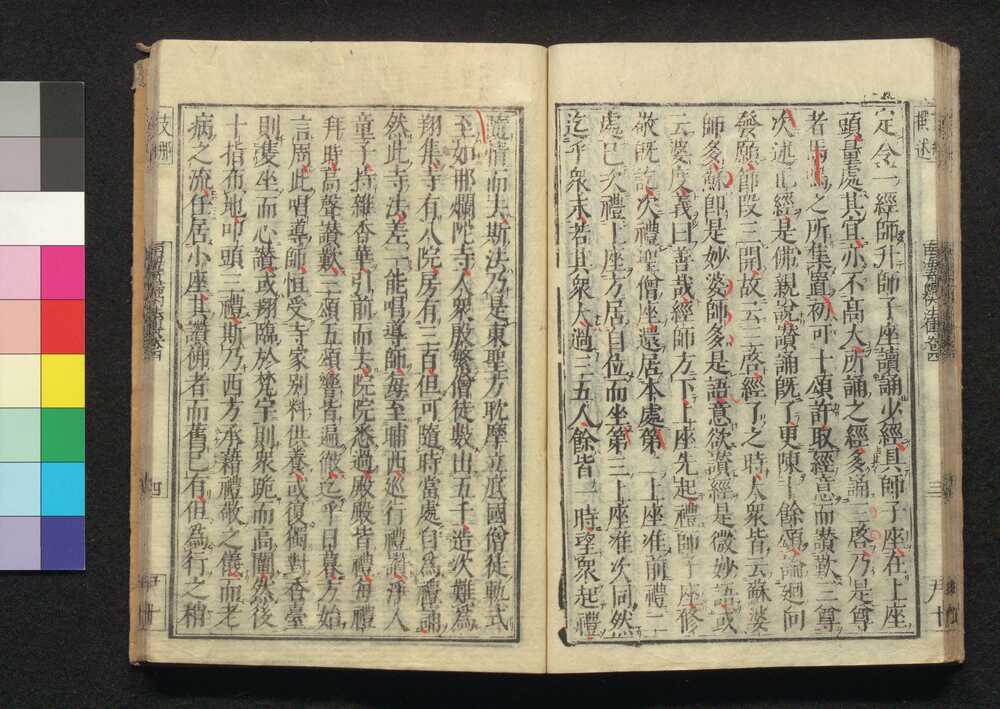 定令一經師升師子座讀誦少經其師子座在上座
頭量處其宜亦不高大所誦之經多誦三啓乃是尊
者馬鳴之所集置初可十頌許取經意而讚歎三尊
次述正經是佛親說讀誦既了更陳十餘頌論迴向
發願節段三開故云三啓經了之時大衆皆云蘇婆
師多蘇即是妙婆師多是語意欲讚經是微妙語或
云婆度義曰善哉經師方下上座先起禮師子座修
敬既訖次禮聖僧座還居本處第二上座准前禮二
處已次禮上座方居自位而坐第三上座准次同然
迄乎衆末若其衆大過三五人餘皆一時望衆起禮
隨情而去斯法乃是東聖方耽摩立底國僧徒軌式
至如那爛陀寺人衆殷繁僧徒數出五千造次難爲
翔集寺有八院房有三百但可隨時當處自爲禮誦
然此寺法差一能唱導師每至晡西巡行禮讚淨人
童子持雜香華引前而去院院悉過殿殿皆禮每禮
拜時高聲讚歎三頌五頌響皆遍徹迄乎日暮方始
言周此唱導師恒受寺家別料供養或復獨對香臺
則隻坐而心讚或翔臨於梵宇則衆跪而高闡然後
十指布地叩頭三禮斯乃西方承籍禮敬之儀而老
病之流任居小座其讚佛者而舊已有但爲行之稍